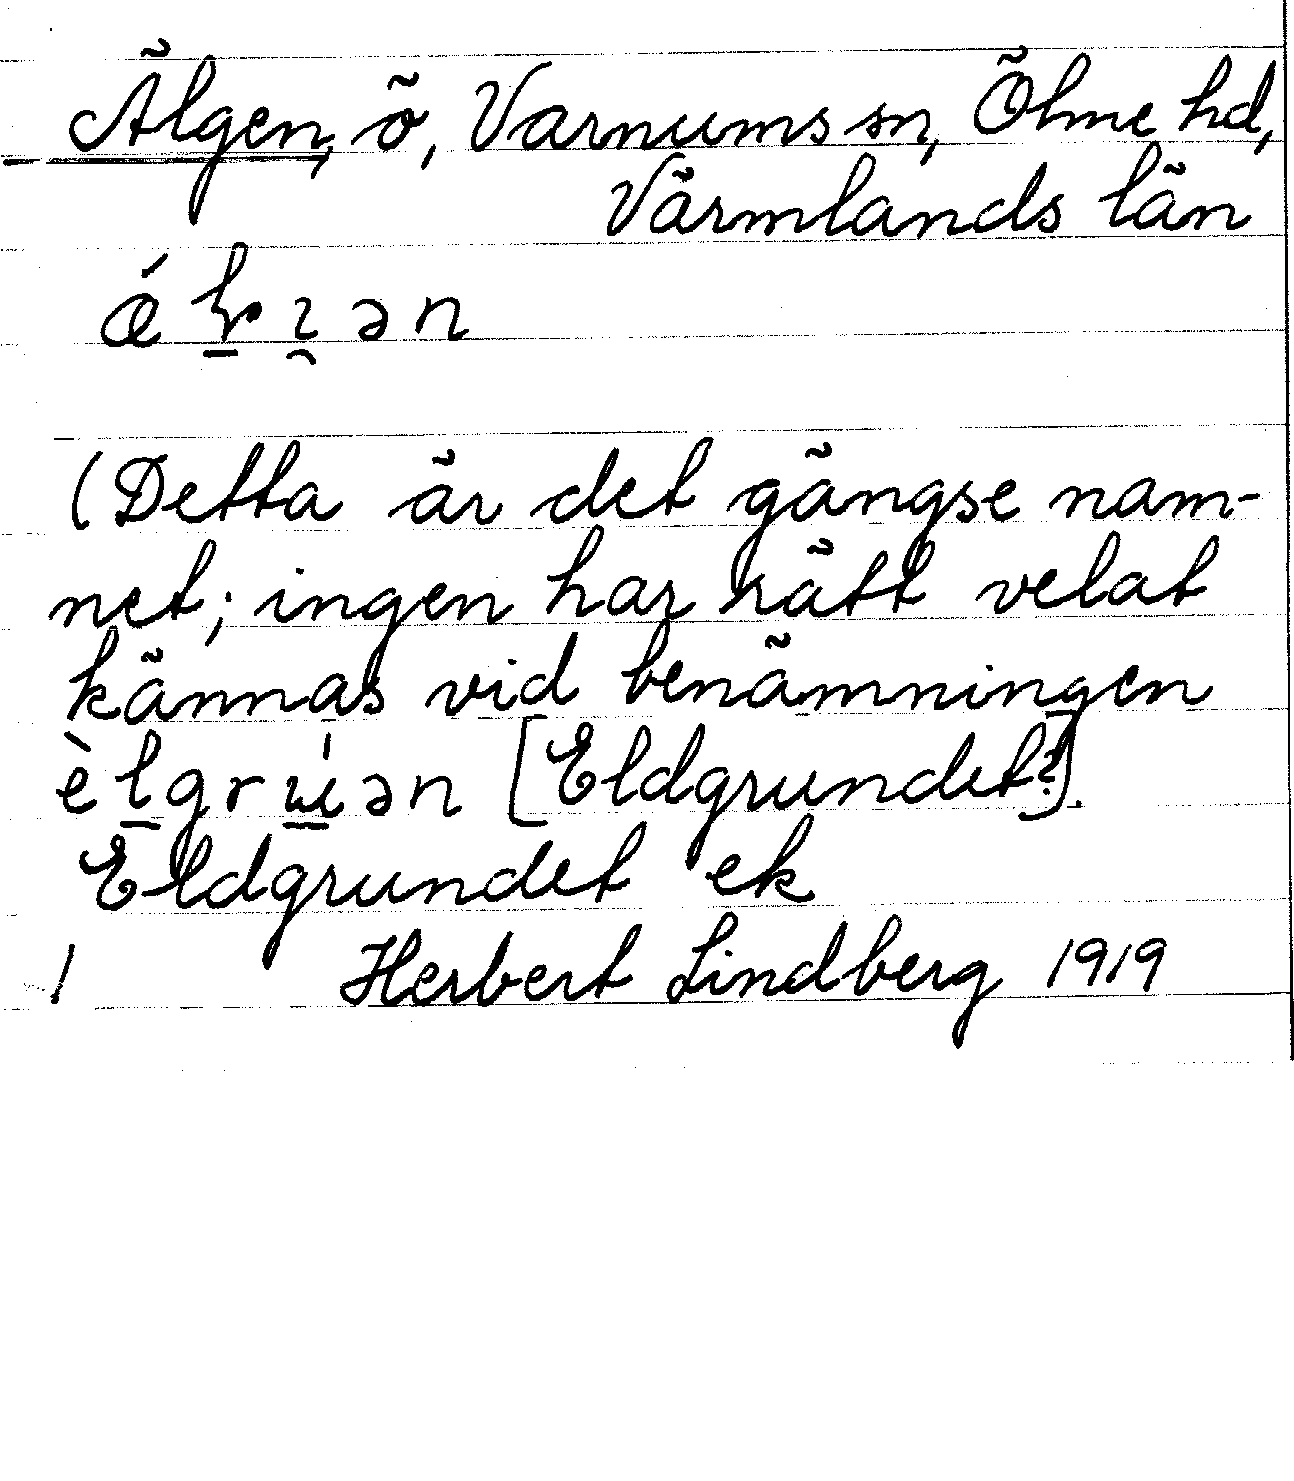 Älgen, ö, Varnums sn, Ölme hd,
Värmlands län
(Detta är det gängse nam-
net; ingen har rätt velat
kännas vid benämningen
èlgrẃən [Eldgrundet?].
Eldgrundet ek
/ Herbert Lindberg 1919